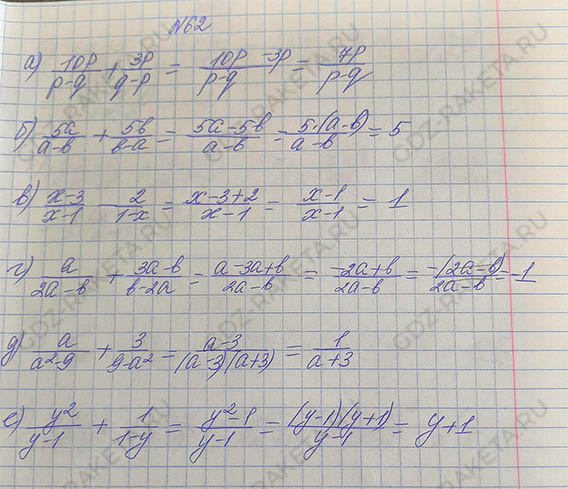 №62
а) 10p/(p-q) + 3p/(q-p) = (10p -3p)/(p-q) = 7p/(p-q)
б) 5a/(a-b) + 5b/(b-a) = (5a-5b)/(a-b) = 5·(a-b)/(a-b) = 5
в) (x-3)/(x-1) - 2/(1-x) = (x-3+2)/(x-1) = (x-1)/(x-1) = 1
г) a/(2a-b) + (3a-b)/(b-2a) = (a-3a+b)/(2a-b) = (-2a+b)/(2a-b) = -(2a-b)/(2a-b) = -1
д) a/(a²-9) + 3/(9-a²) = (a-3)/((a-3)(a+3)) = 1/(a+3)
е) y²/(y-1) + 1/(1-y) = (y²-1)/(y-1) = (y-1)(y+1)/(y-1) = y+1
GDZ-RAKETA.RU